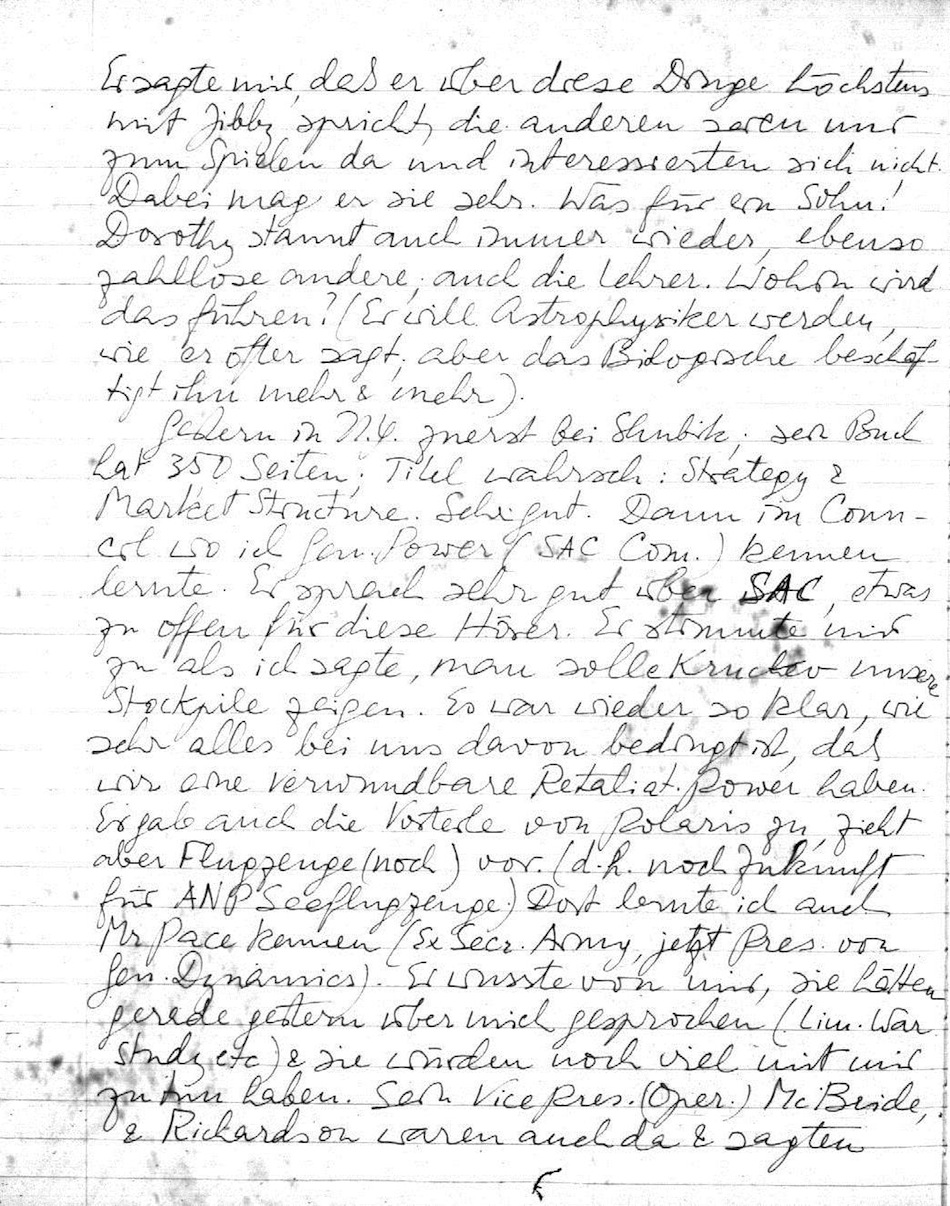 Er sagte mir, daß er über diese Dinge höchstens
mit Jibby spricht, die anderen seien nur
zum Spielen da und interessierten sich nicht.
Dabei mag er sie sehr. Was für ein Sohn!
Dorothy staunt auch immer wieder, ebenso
zahllose andere, auch die Lehrer. Wohin wird
das führen? (Er will Astrophysiker werden,
wie er öfter sagt, aber das Biologische beschäf-
tigt ihn mehr & mehr).
Gestern in N.Y. zuerst bei Shubik; sein Buch
hat 350 Seiten; Titel wahrsch: Strategy &
Market Structure. Sehr gut. Dann im Coun-
cil wo ich Gen. Power (SAC Com.) kennen
lernte. Er sprach sehr gut über SAC, etwas
zu offen für diese Hörer. Er stimmte mir
zu als ich sagte, man solle Kruchev unsere
Stockpile zeigen. Es war wieder so klar, wie
sehr alles bei uns davon bedingt ist, daß
wir eine verwundbare Retaliat. power haben.
Er gab auch die Vorteile von Polaris zu, zieht
aber Flugzeuge (noch) vor. (d.h. noch Zukunft
für ANP Seeflugzeuge.) Dort lernte ich auch
Mr Pace kennen (Ex Secr. Army, jetzt Pres. von
Gen. Dynamics). Er wusste von mir, sie hätten
gerade gestern über mich gesprochen (Lim. War
Study etc) & sie würden noch viel mit mir
zu tun haben. Sein Vice Pres. (Oper.)
& Richardson waren auch da & sagten